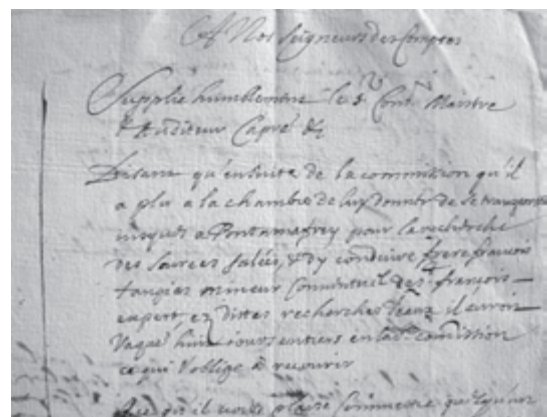 A Nos Seigneurs des Comptes
Supplie humblement le s.r Con.er Maistre
& Auditeur Capré &c
Disant qu'ensuite de la commission qu'il
a plu a la chambre de luy donner de se transporter
jusques a Pontamafrey pour la recherche
des sources salées, & d'y conduire frere francois
mineur Conventuel de St francois
expert ez dittes recherches il auroit
Vaqué huit jours entiers en lad. comission
ce qui l'oblige de recourir
il vous plaise Commettre quelqu'un